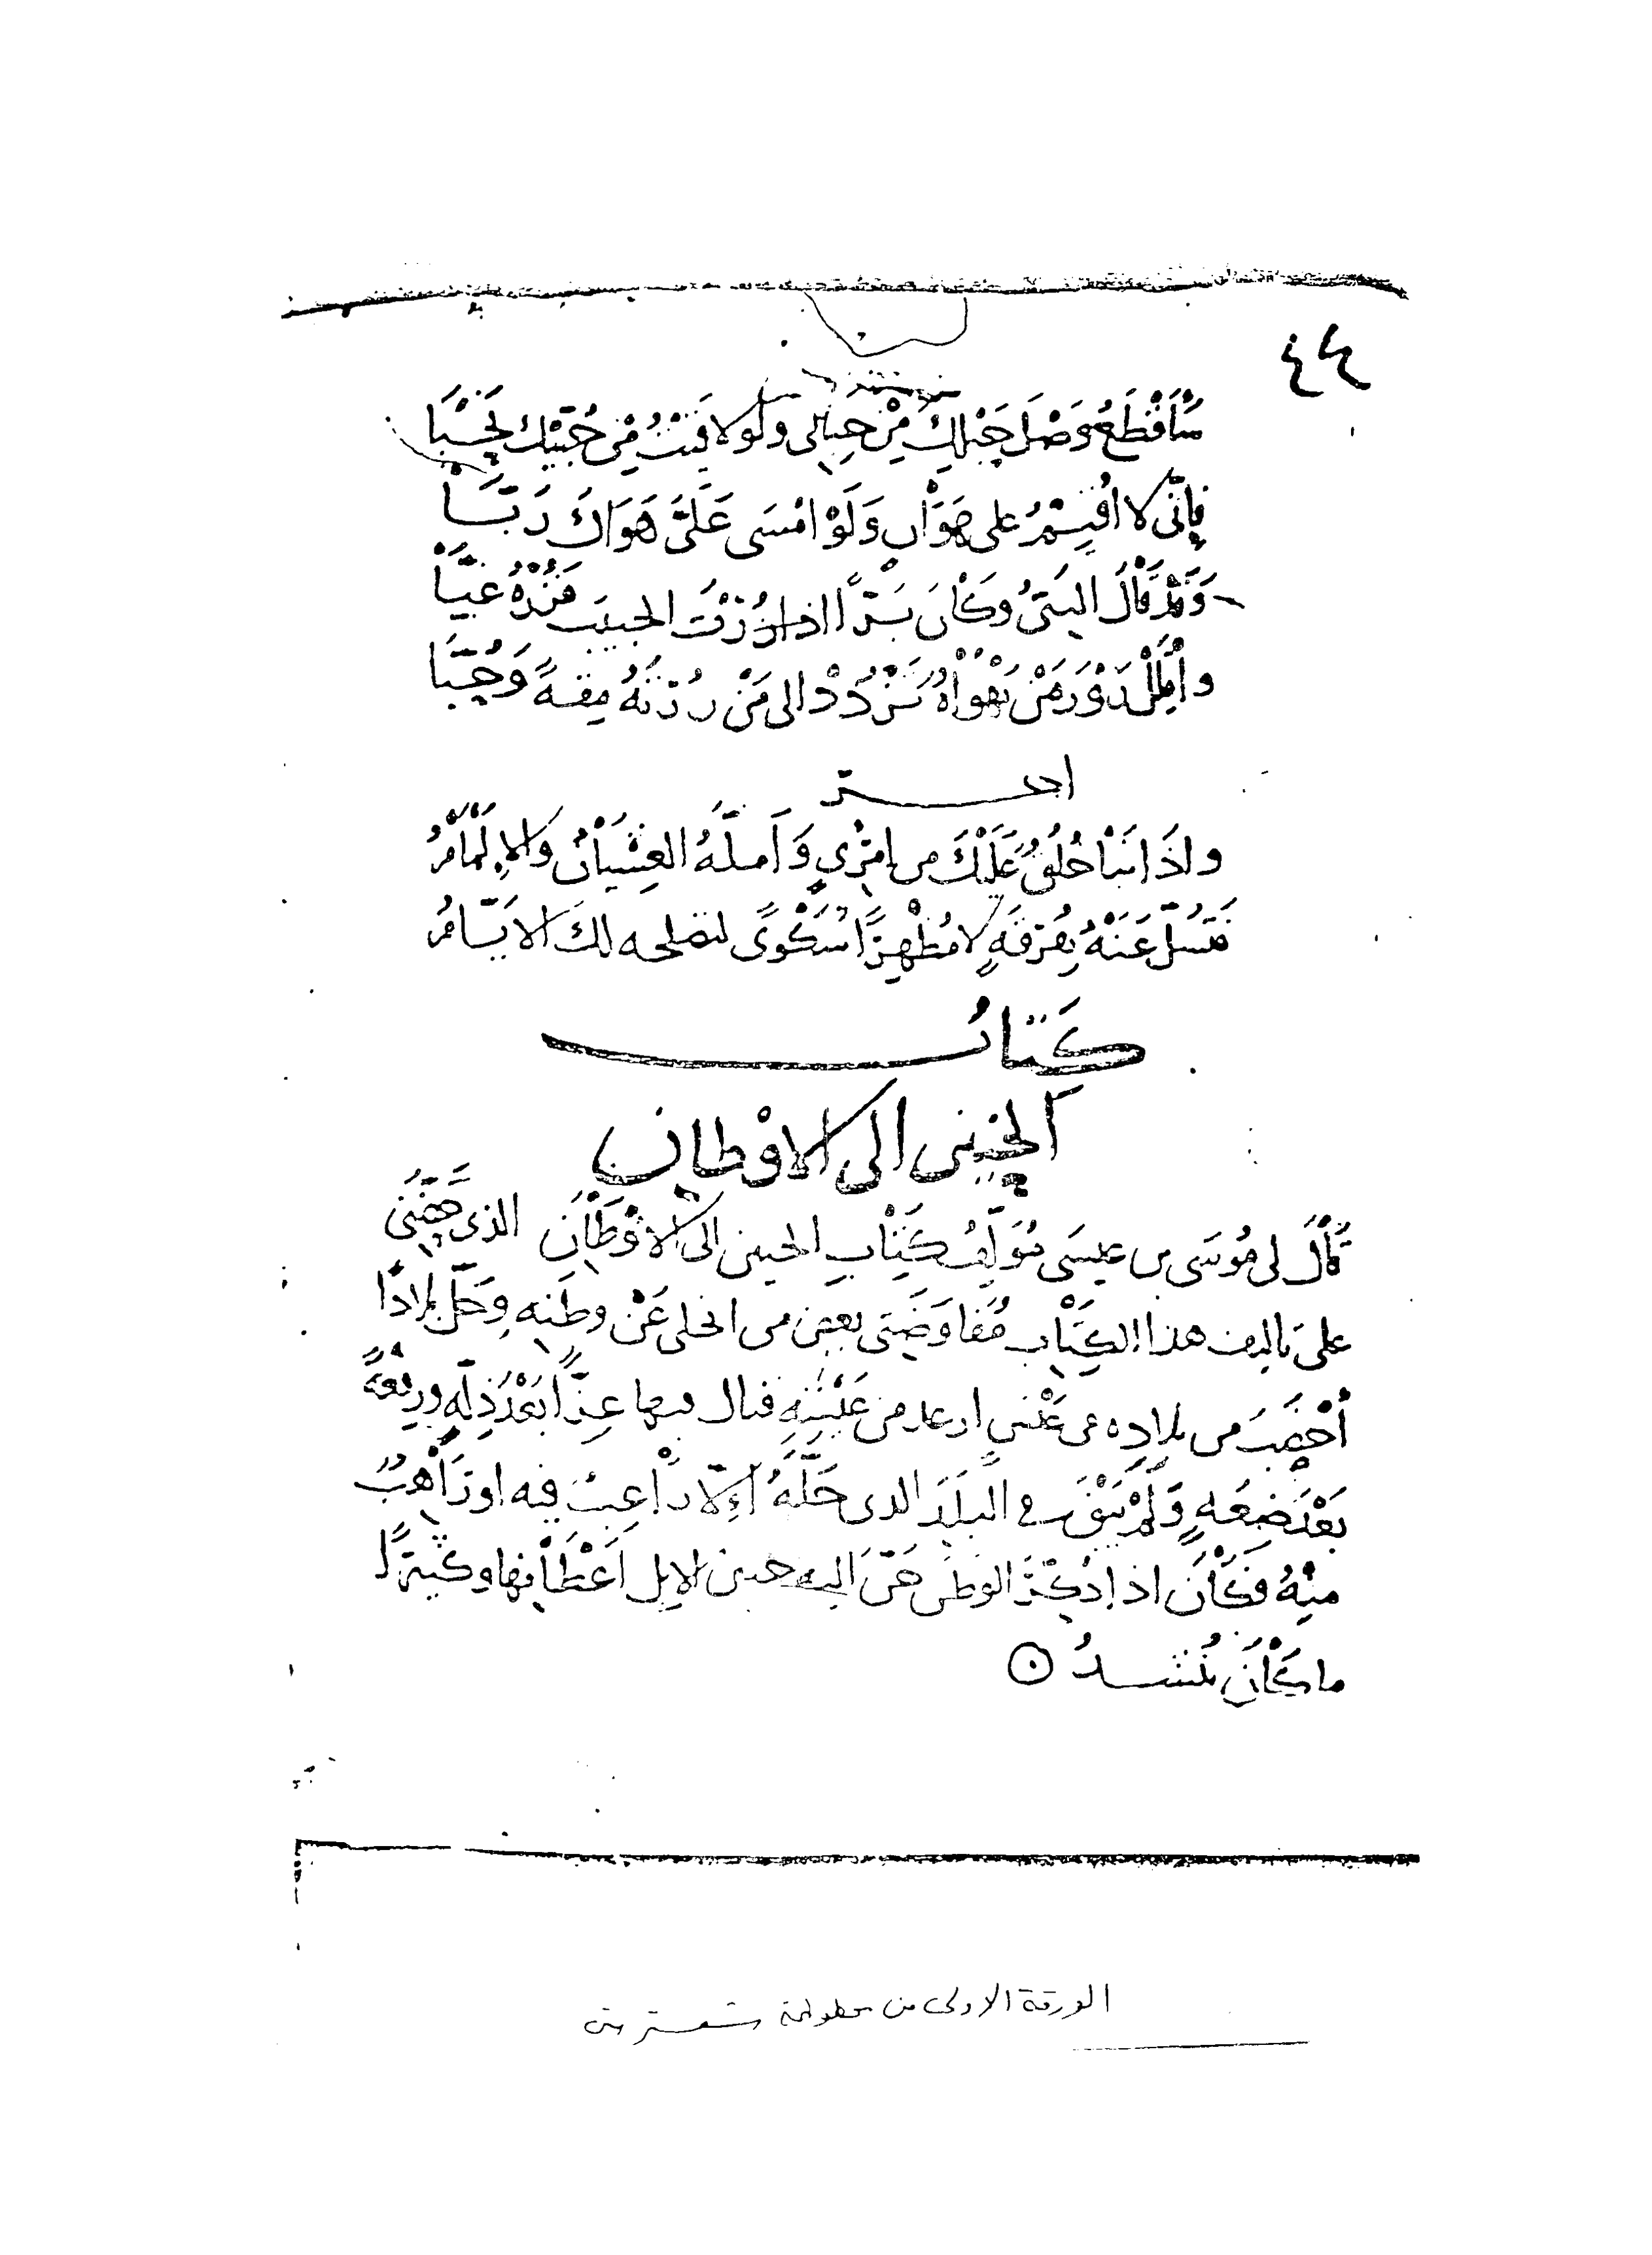 ٤٤
سَأَقْطَعُ وَصْلَ حَبْلِكَ مِنْ حِبَالِى ولَو لاقَيْتُ مِنْ حُبَّيْكَ نَحْبَا
فإنّى لا أقيمُ على هَوَانٍ وَلَوْ امْسَى عَلَىَّ هَوَاكَ رَبَّا
وَقَدْ قَالَ النبىُّ وكَانَ بَرًّا اذا زُرْتَ الحبيبَ فَزُرْهُ غِبَّا
وأَقْلِلْ زَوْرَ مَنْ تَهْوَاهُ تَزْدَدْ الى مَنْ زُرْتَهُ مِقَةً وَحُبَّا
اخر
واذَا نَبَا خُلُقٌ عَلَيْكَ من امْرِىءٍ وَأمَلَّهُ الغِشْيَانُ وَالإلمَامُ
فَتَسَلَّ عَنْهُ بِفُرْقَةٍ لا مُظْهِرًا شَكْوًى لتصلحه لكَ الايَّامُ
كِتَابُ
الحَنِين الى الاوْطان
قَالَ لى مُوسَى بن عيسَى مُؤلِّفُ كِتَابِ الحنين الى الاوْطَانِ الذى حَضَّنى
على تاليف هذا الكِتَابِ مُفَاوَضَتى بعض من انتقل عَنْ وطَنِهِ وحَلَّ بلادًا
أخْصَبَ من بلادِه من غَيْبَتِهِ فنال فيها عِزًّا بَعْدَ ذِلَّهٍ ورِفْعَةً
بَعْدَ ضِعَةٍ وَلَمْ يَبْقَ فى البَلَدِ الذى حَلَّهُ إلّا رَاغِبٌ فيه او رَاهِبٌ
مِنْهُ فكَانَ اذا ذَكَرَ الوطن حَنَّ اليه حنين الإبل الى أعْطَانِها وكَثِيرًا
ما كَانَ يُنْشدُ ⊙
الورقة الاولى من مخطوطة شستر بتى